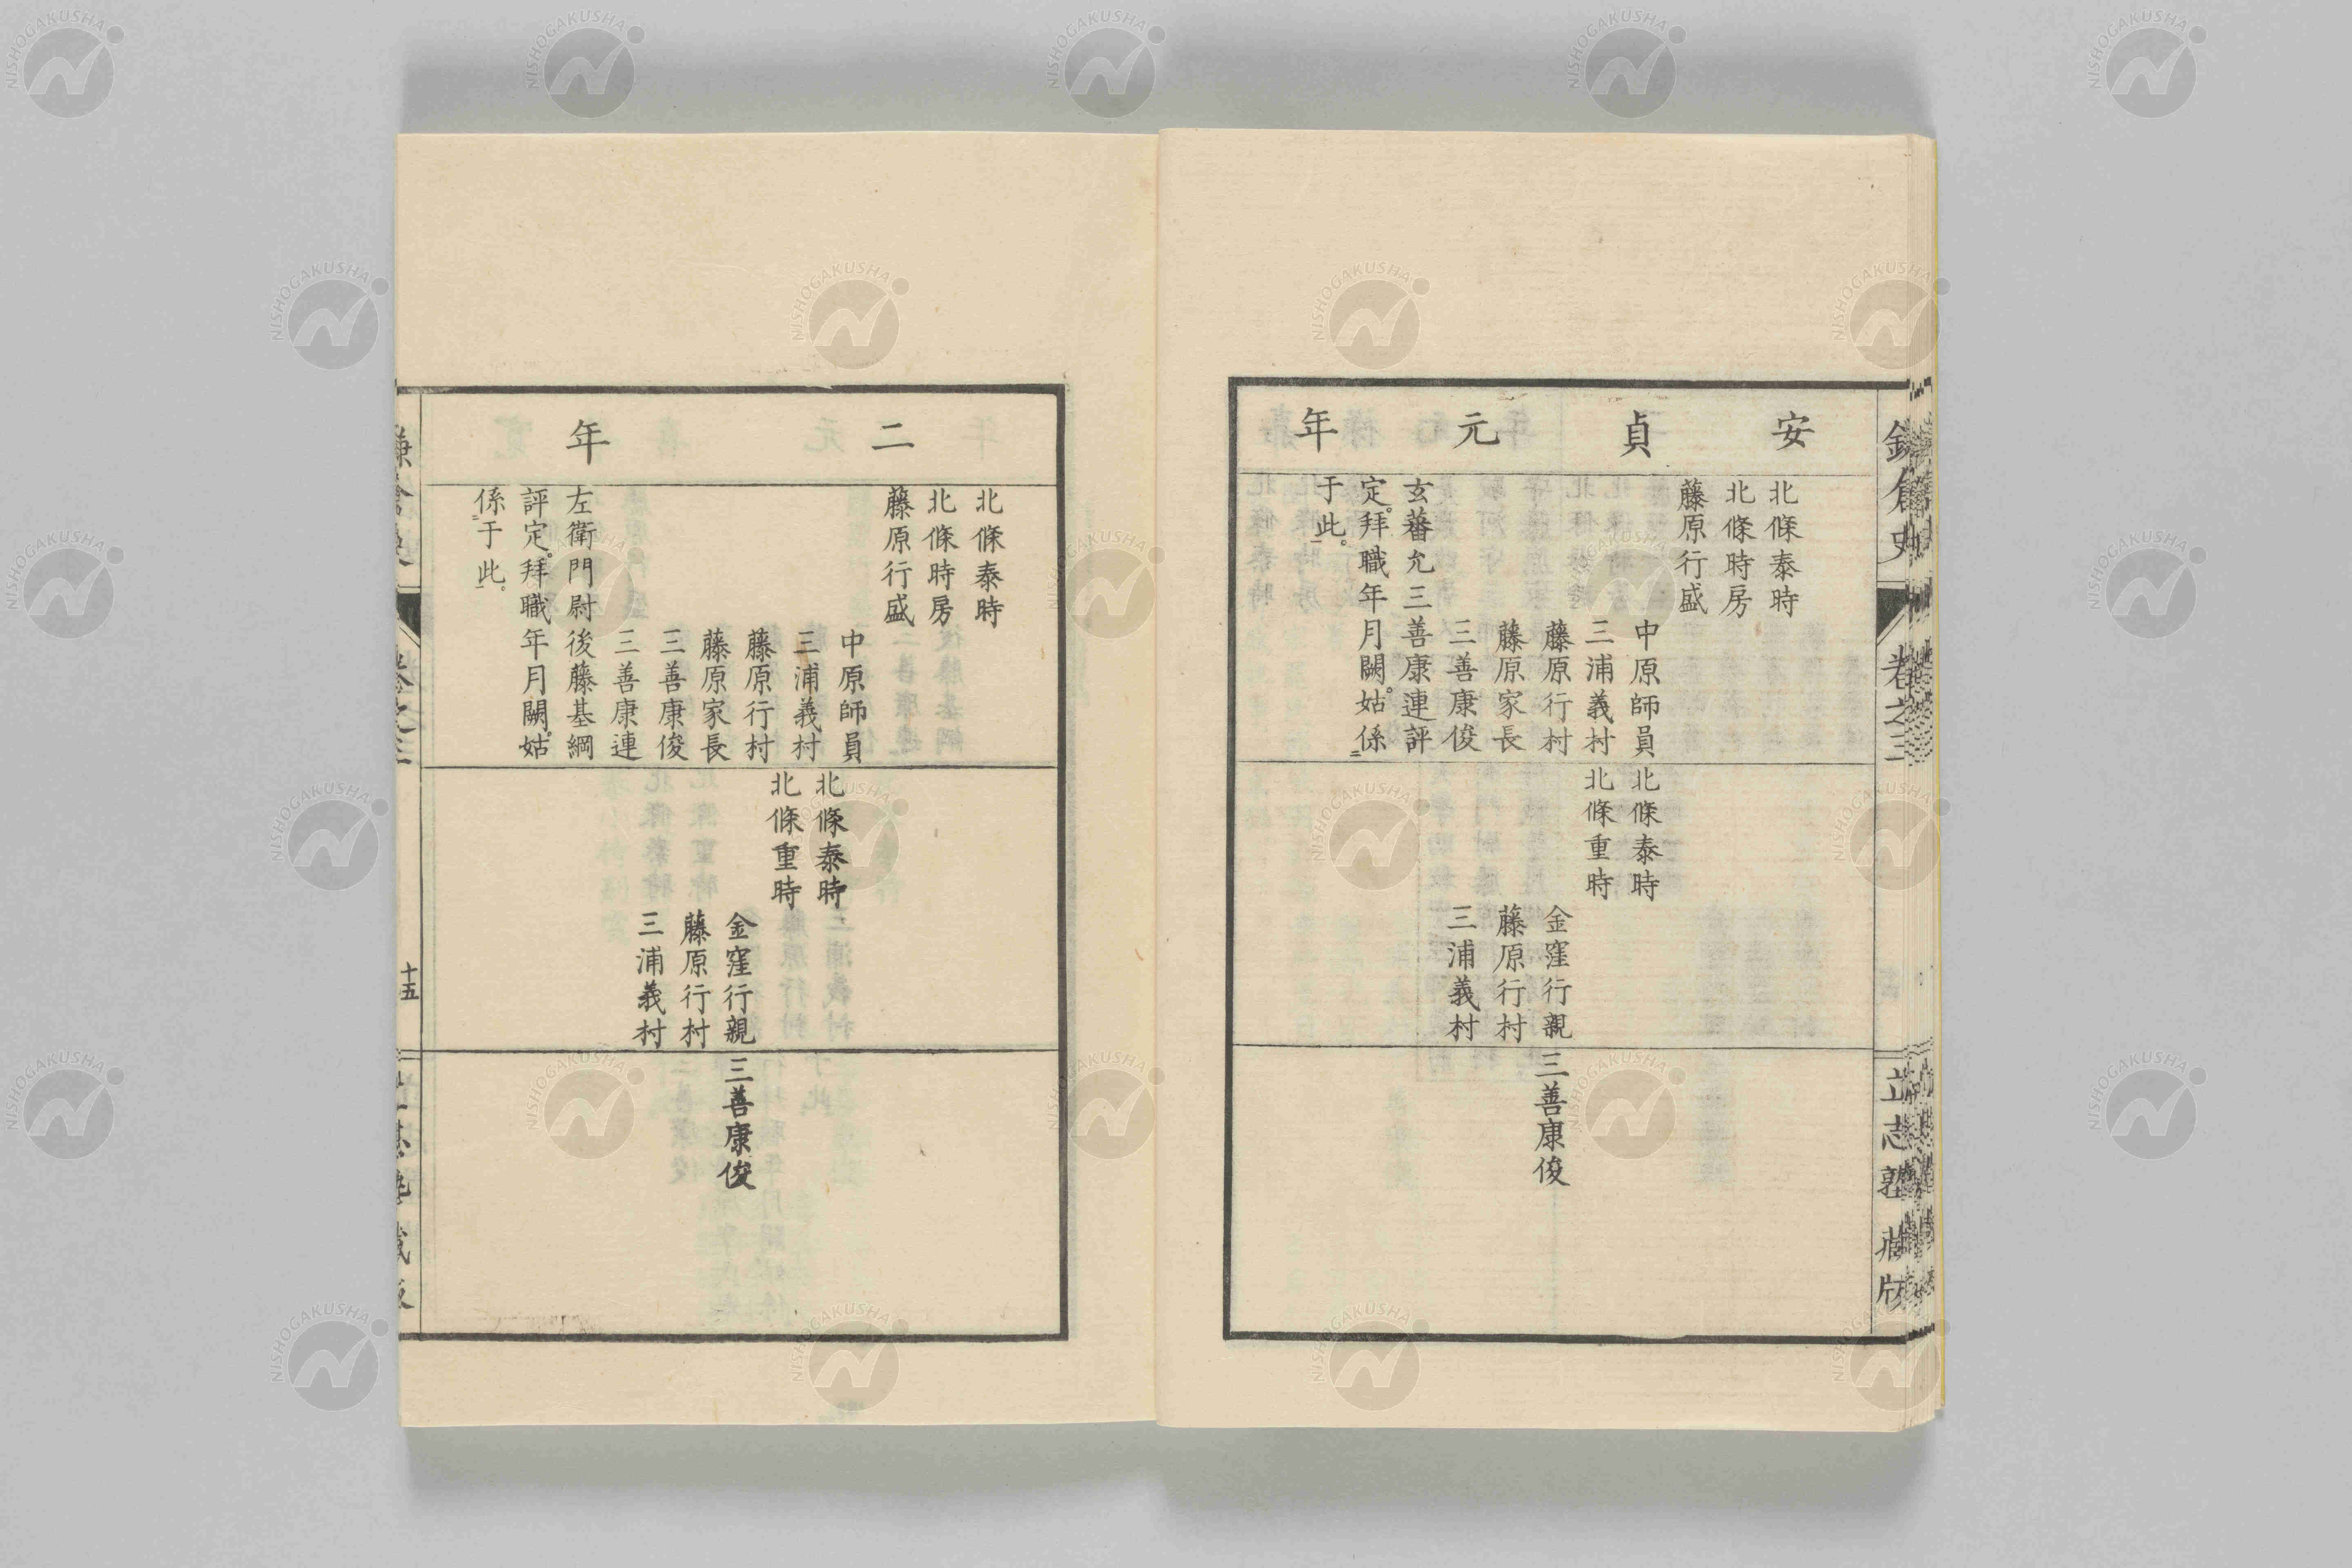 安貞元年
北條泰時
北條時房
藤原行盛
中原師員
三浦義村
藤原行村
藤原家長
三善康俊
玄蕃允三善康連評
定。拜職年月闕。姑係
于此。
北條泰時
北條重時
金窪行親
藤原行村
三浦義村
三善康俊
卷之三
立志塾藏版
二年
北條泰時
北條時房
藤原行盛
中原師員
三浦義村
藤原行村
藤原家長
三善康俊
三善康連
左衛門尉後藤基綱
評定。拜職年月闕。姑
係于此。
北條泰時
北條重時
金窪行親
藤原行村
三浦義村
三善康俊
十五
NISHOGAKUSHA